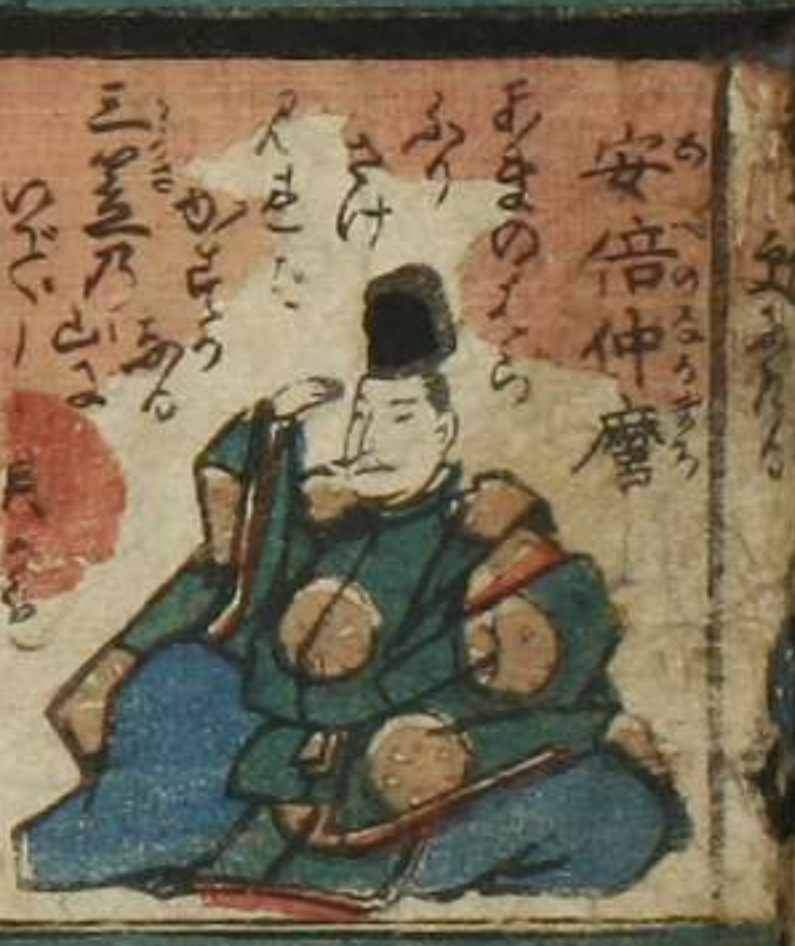 安倍仲麿
あべのなかまろ
あまのはら
ふり
さけ
見れば
かすが
なる
三笠乃
みかさ
山に
いでし
月かも